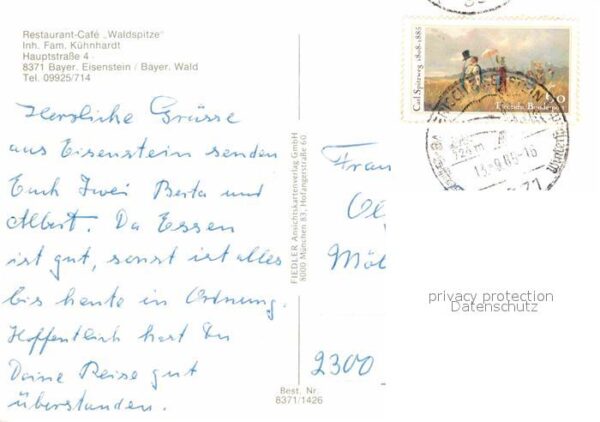 Restaurant-Café „Waldspitze"
Inh. Fam. Kühnhardt
Hauptstraße 4
8371 Bayer. Eisenstein / Bayer. Wald
Tel. 09925/714
Herzliche Grüsse
aus Eisenstein senden
Euch Zwei Berta und
Albert. Da Essen
ist gut, sonst ist alles
bis heute in Ordnung.
Hoffentlich hast Du
Deine Reise gut
überstanden.
FIEDLER Ansichtskartenverlag GmbH
8000 München 83, Hofangerstraße 60
Best. Nr
8371/1426
Carl Spitzweg 1808-1885
Deutsche Bundespost
60
EISENSTEIN
724m
13.-9.85-16
Frau
Möl
2300
privacy protection
Datenschutz